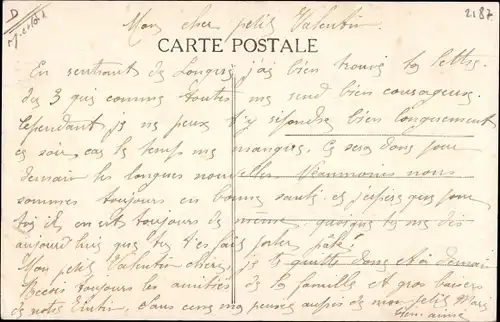 D
2187
Mon cher petit Valentin.
CARTE POSTALE
En rentrant de Longwy j'ai bien trouvé ta lettre
du 3 qui comme toutes me rend bien courageuse.
Cependant je ne peux t'y répondre bien longuement
ce soir, car le temps me manque. Ce sera donc pour
demain les longues nouvelles. Néanmoins nous
sommes toujours en bonne santé et j'espère que pour
toi il en est toujours de même, quoique tu me dis
aujourd'hui que tu t'es fait porter pâle!
Mon petit Valentin chéri, je te quitte donc et à demain
Reçois toujours les amitiés de la famille et gros baisers
de notre Titin, dans ceux ma pensée auprès de mon petit Mari
bien aimé